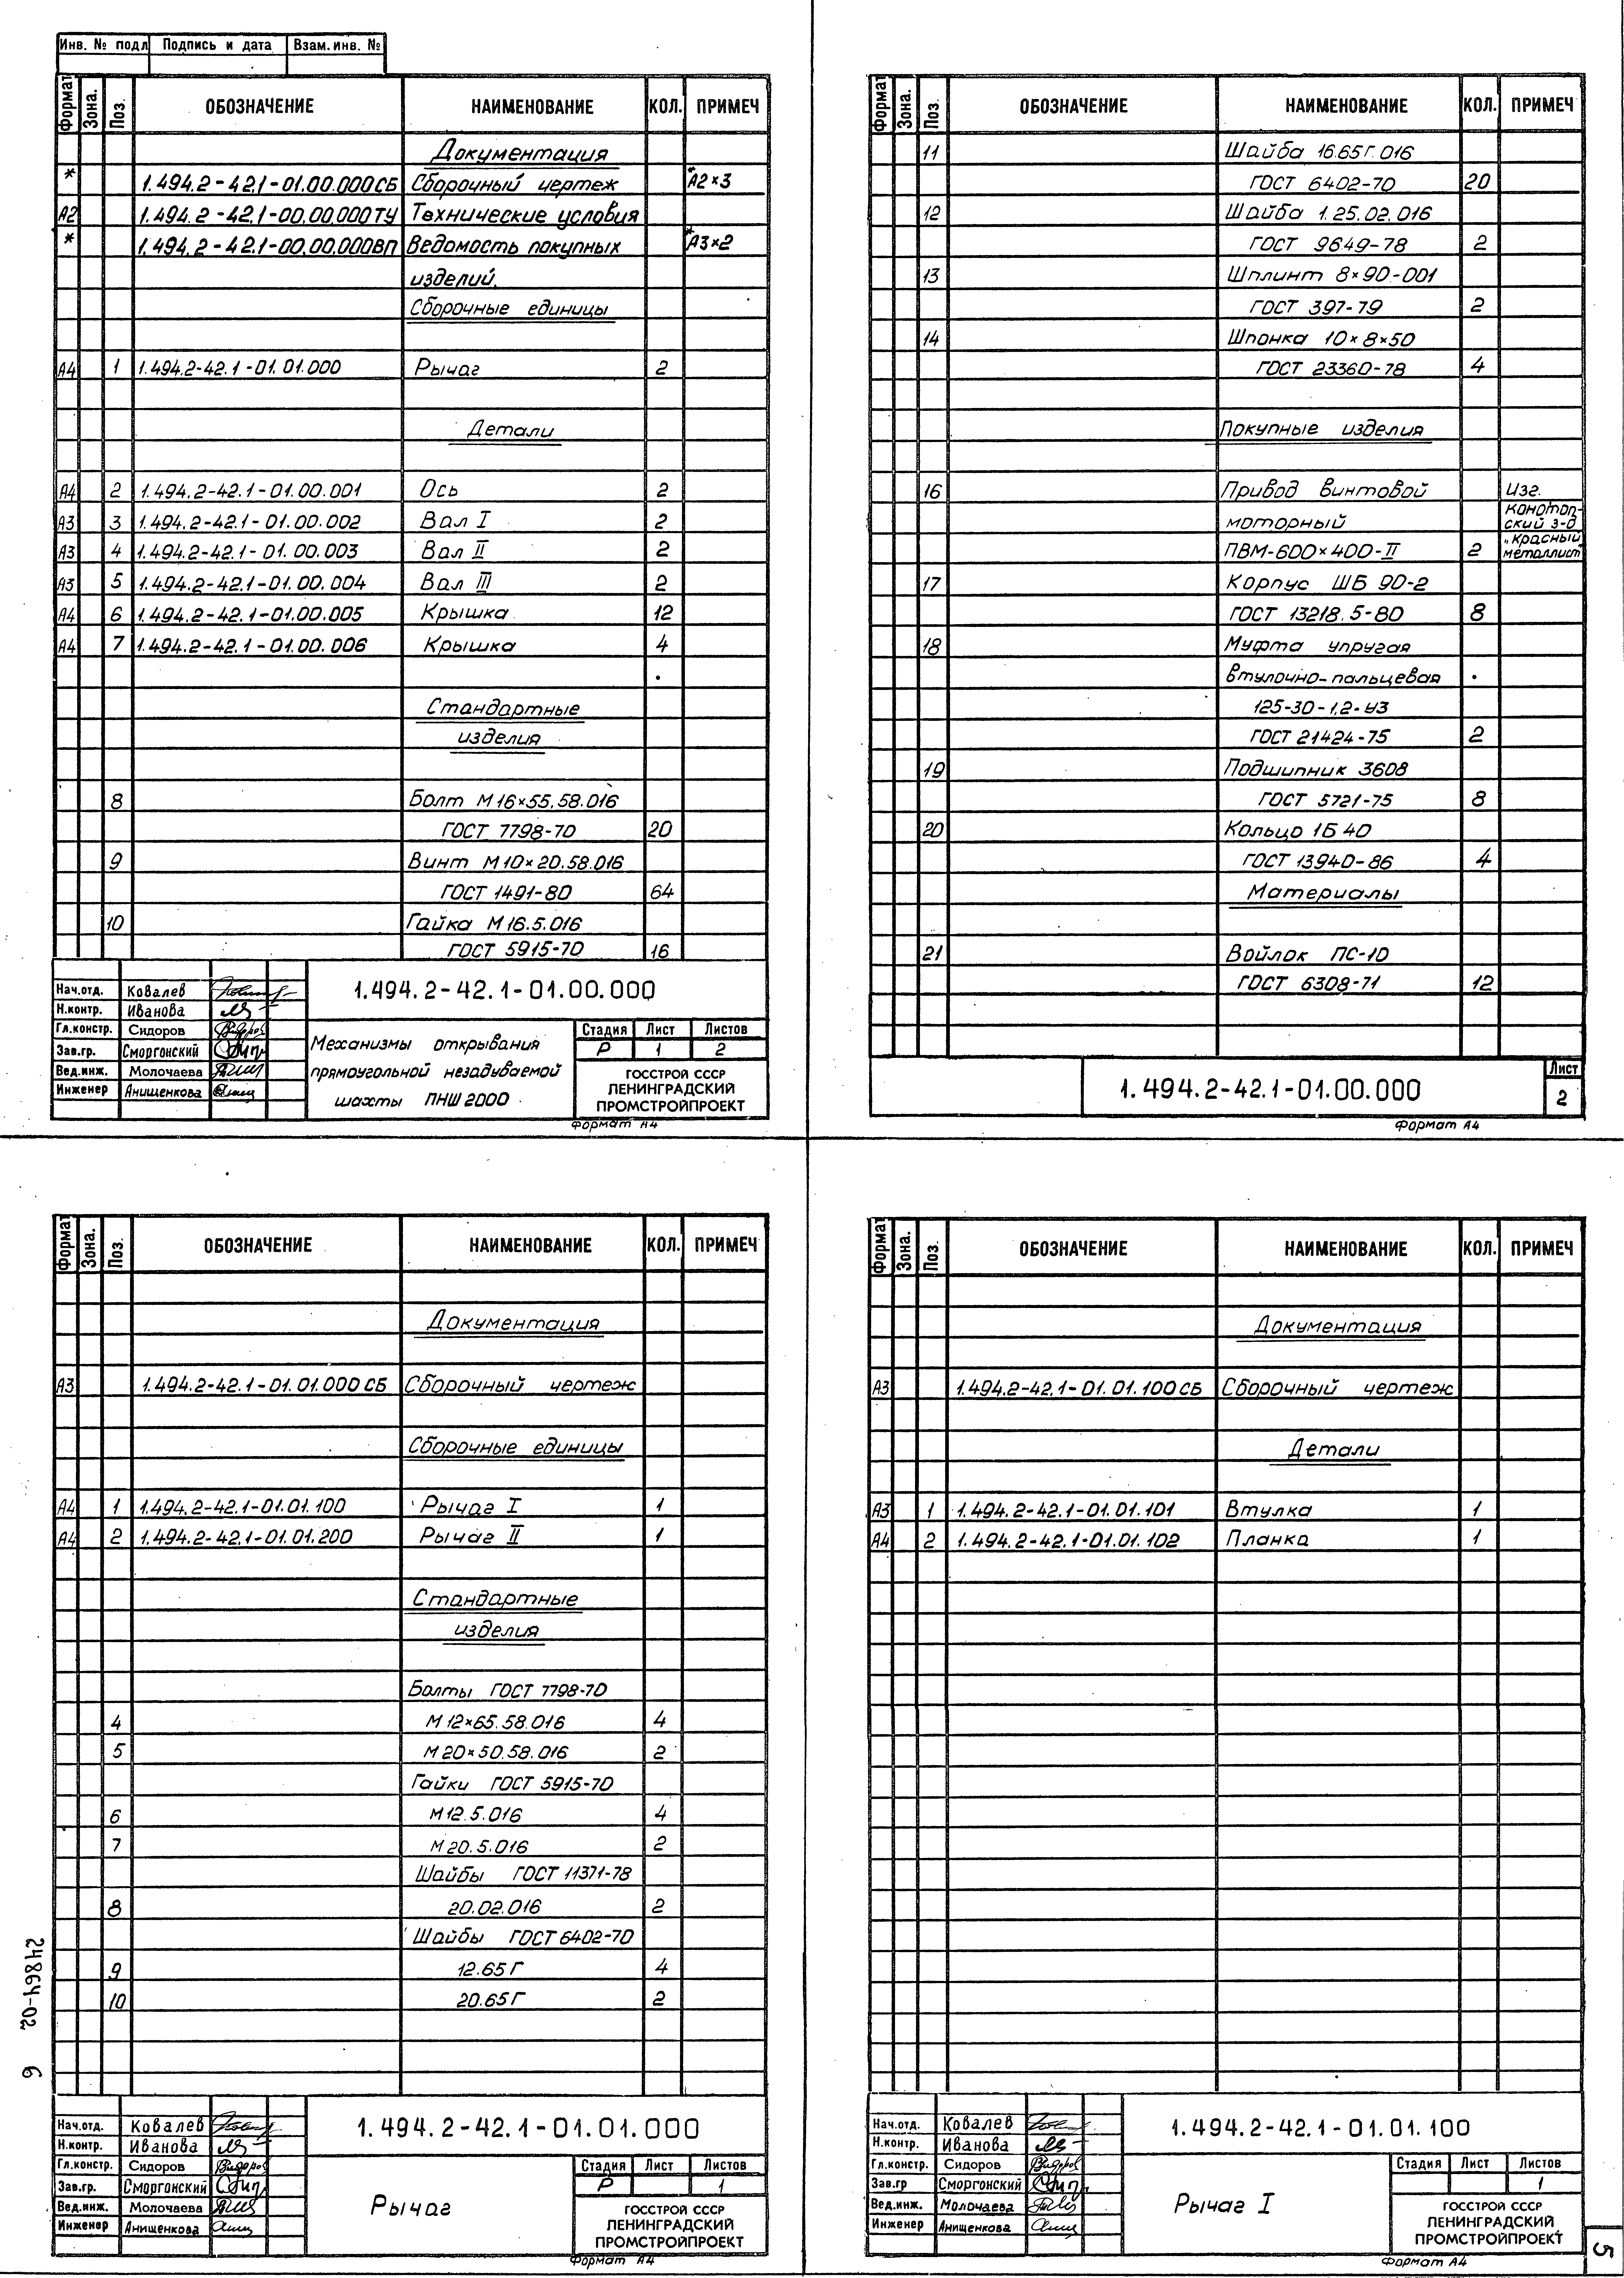 Инв. № подл Подпись и дата Взам. инв. №
Формат Зона. Поз. ОБОЗНАЧЕНИЕ НАИМЕНОВАНИЕ КОЛ. ПРИМЕЧ
Документация
* 1.494.2-42.1-01.00.000СБ Сборочный чертеж *А2×3
А2 1.494.2-42.1-00.00.000ТУ Технические условия
* 1.494.2-42.1-00.00.000ВП Ведомость покупных *А3×2
изделий.
Сборочные единицы
А4 1 1.494.2-42.1-01.01.000 Рычаг 2
Детали
А4 2 1.494.2-42.1-01.00.001 Ось 2
А3 3 1.494.2-42.1-01.00.002 Вал I 2
А3 4 1.494.2-42.1-01.00.003 Вал II 2
А3 5 1.494.2-42.1-01.00.004 Вал III 2
А4 6 1.494.2-42.1-01.00.005 Крышка 12
А4 7 1.494.2-42.1-01.00.006 Крышка 4
Стандартные
изделия
8 Болт М16×55.58.016
ГОСТ 7798-70 20
9 Винт М10×20.58.016
ГОСТ 1491-80 64
10 Гайка М16.5.016
ГОСТ 5915-70 16
Нач.отд. Ковалев
Н.контр. Иванова
Гл.констр. Сидоров
Зав.гр. Сморгонский
Вед.инж. Молочаева
Инженер Анищенкова
1.494.2-42.1-01.00.000
Механизмы открывания
прямоугольной незадуваемой
шахты ПНШ 2000
Стадия Лист Листов
Р 1 2
ГОССТРОЙ СССР
ЛЕНИНГРАДСКИЙ
ПРОМСТРОЙПРОЕКТ
Формат А4
Формат Зона. Поз. ОБОЗНАЧЕНИЕ НАИМЕНОВАНИЕ КОЛ. ПРИМЕЧ
11 Шайба 16.65Г.016
ГОСТ 6402-70 20
12 Шайба 1.25.02.016
ГОСТ 9649-78 2
13 Шплинт 8×90-001
ГОСТ 397-79 2
14 Шпонка 10×8×50
ГОСТ 23360-78 4
Покупные изделия
16 Привод винтовой изг.
моторный Конотоп-
ский з-д
ПВМ-600×400-II 2 „Красный
металлист"
17 Корпус ШБ 90-2
ГОСТ 13218.5-80 8
18 Муфта упругая
втулочно-пальцевая
125-30-1.2-У3
ГОСТ 21424-75 2
19 Подшипник 3608
ГОСТ 5721-75 8
20 Кольцо 1Б 40
ГОСТ 13940-86 4
Материалы
21 Войлок ПС-10
ГОСТ 6308-71 12
1.494.2-42.1-01.00.000
Лист
2
Формат А4
Формат Зона. Поз. ОБОЗНАЧЕНИЕ НАИМЕНОВАНИЕ КОЛ. ПРИМЕЧ
Документация
А3 1.494.2-42.1-01.01.000 СБ Сборочный чертеж
Сборочные единицы
А4 1 1.494.2-42.1-01.01.100 Рычаг I 1
А4 2 1.494.2-42.1-01.01.200 Рычаг II 1
Стандартные
изделия
Болты ГОСТ 7798-70
4 М12×65.58.016 4
5 М20×50.58.016 2
Гайки ГОСТ 5915-70
6 М12.5.016 4
7 М20.5.016 2
Шайбы ГОСТ 11371-78
8 20.02.016 2
Шайбы ГОСТ 6402-70
9 12.65Г 4
10 20.65Г 2
24864-02 6
Нач.отд. Ковалев
Н.контр. Иванова
Гл.констр. Сидоров
Зав.гр. Сморгонский
Вед.инж. Молочаева
Инженер Анищенкова
1.494.2-42.1-01.01.000
Рычаг
Стадия Лист Листов
Р 1
ГОССТРОЙ СССР
ЛЕНИНГРАДСКИЙ
ПРОМСТРОЙПРОЕКТ
Формат А4
Формат Зона. Поз. ОБОЗНАЧЕНИЕ НАИМЕНОВАНИЕ КОЛ. ПРИМЕЧ
Документация
А3 1.494.2-42.1-01.01.100СБ Сборочный чертеж
Детали
А3 1 1.494.2-42.1-01.01.101 Втулка 1
А4 2 1.494.2-42.1-01.01.102 Планка 1
Нач.отд. Ковалев
Н.контр. Иванова
Гл.констр. Сидоров
Зав.гр Сморгонский
Вед.инж. Молочаева
Инженер Анищенкова
1.494.2-42.1-01.01.100
Рычаг I
Стадия Лист Листов
1
ГОССТРОЙ СССР
ЛЕНИНГРАДСКИЙ
ПРОМСТРОЙПРОЕКТ
Формат А4
5